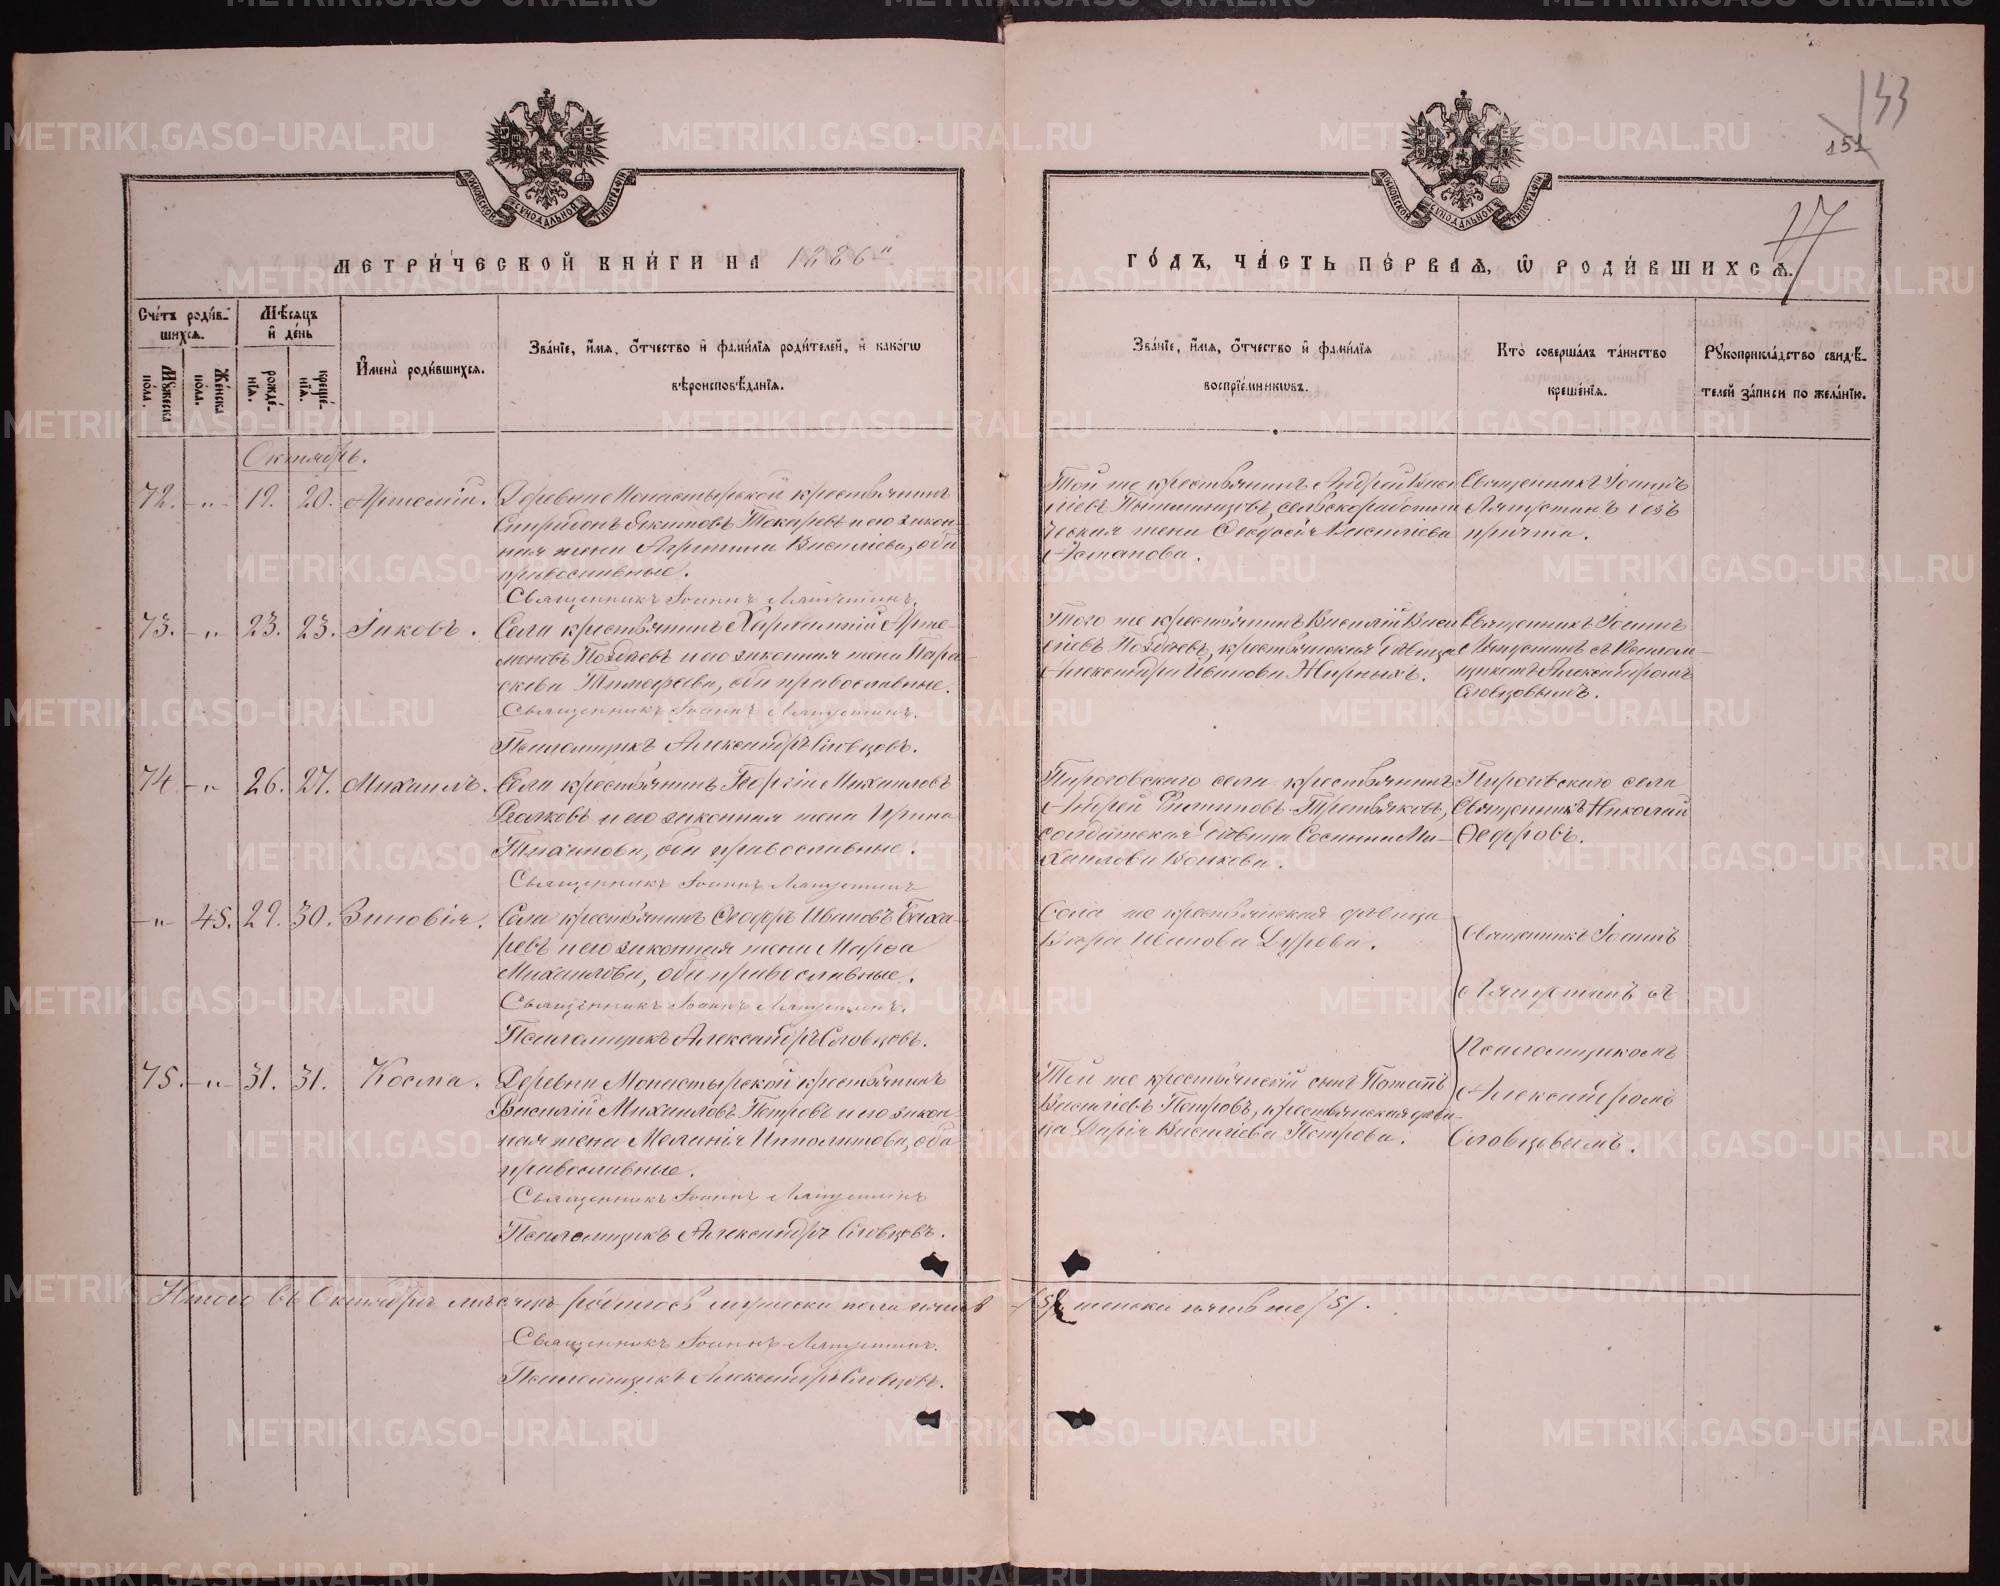 153
151
17
МОСКОВСКОЙ СѴНОДАЛЬНОЙ ТИПОГРАФІИ
МОСКОВСКОЙ СѴНОДАЛЬНОЙ ТИПОГРАФІИ
МЕТРИ́ЧЕСКОЙ КНИ́ГИ НА 1886й
ГО́ДЪ, ЧА́СТЬ ПЕ́РВАѦ, Ѡ҆ РОДИ́ВШИХСѦ.
Сче́тъ роди́в-
шихсѧ.
Мѣ́сѧцъ
и҆ де́нь
Мꙋ́жеска
по́ла.
Же́нска
по́ла.
рожде́-
нїѧ.
креще́-
нїѧ.
И҆мена̀ роди́вшихсѧ.
Зва́нїе, и҆́мѧ, ѻ҆́тчество и҆ фами́лїѧ роди́телей, и҆ како́гѡ
вѣроисповѣ́данїѧ.
Зва́нїе, и҆́мѧ, ѻ҆́тчество и҆ фами́лїѧ
воспрїе́мникѡвъ.
Кто̀ соверша́лъ та́инство
креще́нїѧ.
Рꙋкоприкла́дство свидѣ́-
телей за́писи по жела́нїю.
Октябрь.
72. -„- 19. 20. Артемій. Деревни Монастырской крестьянинъ
Спиридонъ Якимовъ Токаревъ и его закон-
ная жена Агрипина Васильева, оба
православные.
Священникъ Іоаннъ Ляпустинъ.
Той же крестьянинъ Андрей Васи
льевъ
жена Ѳеодосія Васильева
Астапова.
Священникъ Іоаннъ
Ляпустинъ безъ
причта.
73. -„- 23. 23. Іаковъ. Села крестьянинъ Харлампій Арте-
моновъ Поздѣевъ и его законная жена Пара-
скева Тимофеева, оба православные.
Священникъ Іоаннъ Ляпустинъ.
Псаломщикъ Александръ Словцовъ.
Того же крестьянинъ Василій Васи
льевъ Поздѣевъ, крестьянская дѣвица
Александра Иванова Жирныхъ.
Священникъ Іоаннъ
Ляпустинъ съ Псалом-
щикомъ Александромъ
Словцовымъ.
74. -„- 26. 27. Михаилъ. Села крестьянинъ Георгій Михаиловъ
Волковъ и его законная жена Ирина
Тиханова, оба православные.
Священникъ Іоаннъ Ляпустинъ
Пироговскаго села крестьянинъ
Андрей Филиповъ Третьяковъ,
солдатская дѣвица Сосанна Ми-
хаилова Волкова.
Пироговскаго села
Священникъ Николай
Ѳедоровъ.
-„- 45. 29. 30. Зиновія. Села крестьянинъ Ѳеодоръ Ивановъ Быха-
ревъ и его законная жена Марѳа
Михаилова, оба православные.
Священникъ Іоаннъ Ляпустинъ.
Псаломщикъ Александръ Словцовъ.
Села же крестьянская дѣвица
Вѣра Иванова Дурова.
Священникъ Іоаннъ
Ляпустинъ съ
Псаломщикомъ
Александромъ
Словцовымъ.
75. -„- 31. 31. Косма. Деревни Монастырской крестьянинъ
Василій Михаиловъ Петровъ и его закон-
ная жена Меланія Ипполитова, оба
православные.
Священникъ Іоаннъ Ляпустинъ
Псаломщикъ Александръ Словцовъ.
Той же крестьянскій сынъ Потапъ
Васильевъ Петровъ, крестьянская дѣви-
ца Дарія Васильева Петрова.
Итого въ Октябрѣ мѣсяцѣ родилось мужеска пола пять /5/ женска пять же /5/.
Священникъ Іоаннъ Ляпустинъ.
Псаломщикъ Александръ Словцовъ.
METRIKI.GASO-URAL.RU